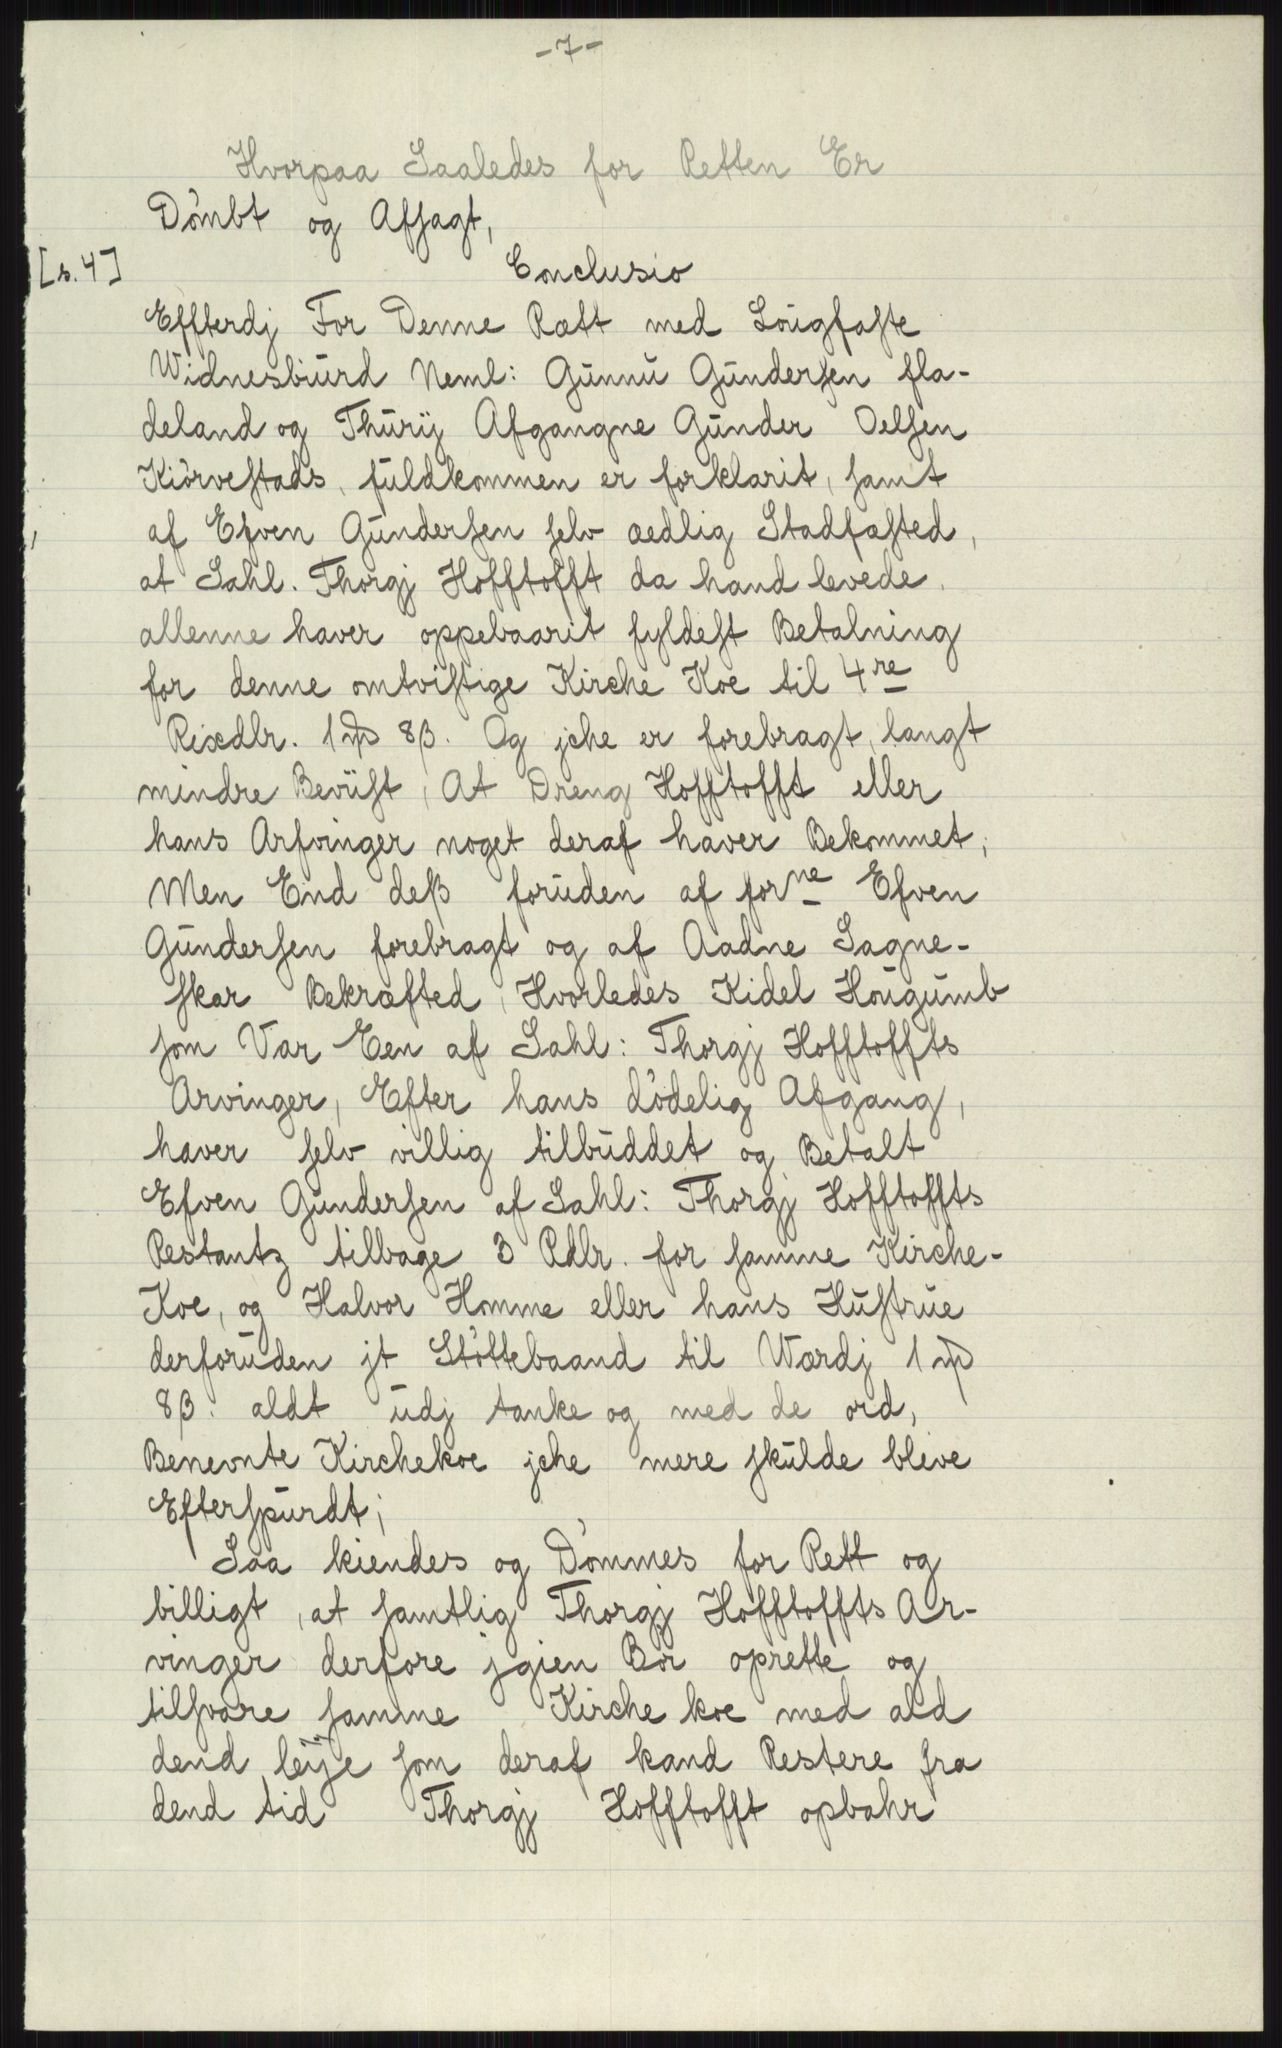 -7-
Hvorpaa Saaledes for Retten Er
Dömbt og Afsagt,
[s. 4] Conclusio
Effterdj For Denne Rætt med Loŭgfaste
Widnesbiŭrd Neml: Gŭnnŭ Gŭndersen fla-
deland og Thŭrij Afgangne Gŭnder Oelsen
Kiörvestads, fŭldkommen er forklarit, samt
af Efven Gŭndersen selv ædlig Stadfæsted,
at Sahl. Thorgj Hofftofft da hand levede,
allenne haver oppebaarit fyldest Betalning
for denne omtvistige Kirche Koe til 4re
Rixdlr. 1 mȹ 8β. Og jche er forebragt, langt
mindre Bevüst, At Dreng Hofftofft eller
hans Arfvinger noget deraf haver Bekommet,
Men End deβ forŭden af forne Efven
Gŭndersen forebragt og af Aadne Sagne-
skar Bekræfted, Hvorledes Kidel Hoŭgŭmb
som Var Een af Sahl: Thorgj Hofftoffts
Arvinger, Efter hans dödelig Afgang,
haver selv villig tilbŭddet og Betalt
Efven Gŭndersen af Sahl: Thorgj Hofftoffts
Restantz tilbage 3 Rdlr. for samme Kirche-
Koe, og Halvor Homme eller hans Hŭstrŭe
derforŭden jt Stöttebaand til Wærdj 1 mȹ
8β. aldt ŭdj tanke og med de ord,
Benevnte Kirchekoe jche mere skŭlde bleve
Efterspŭrdt;
Saa kiendes og Dömmes for Rett og
billigt, at samtlig Thorgj Hofftoffts Ar-
vinger derfore jgien Bör oprette og
tilsvare samme Kirche koe med ald
dend leije som deraf kand Restere fra
dend tid Thorgj Hofftofft opbahr